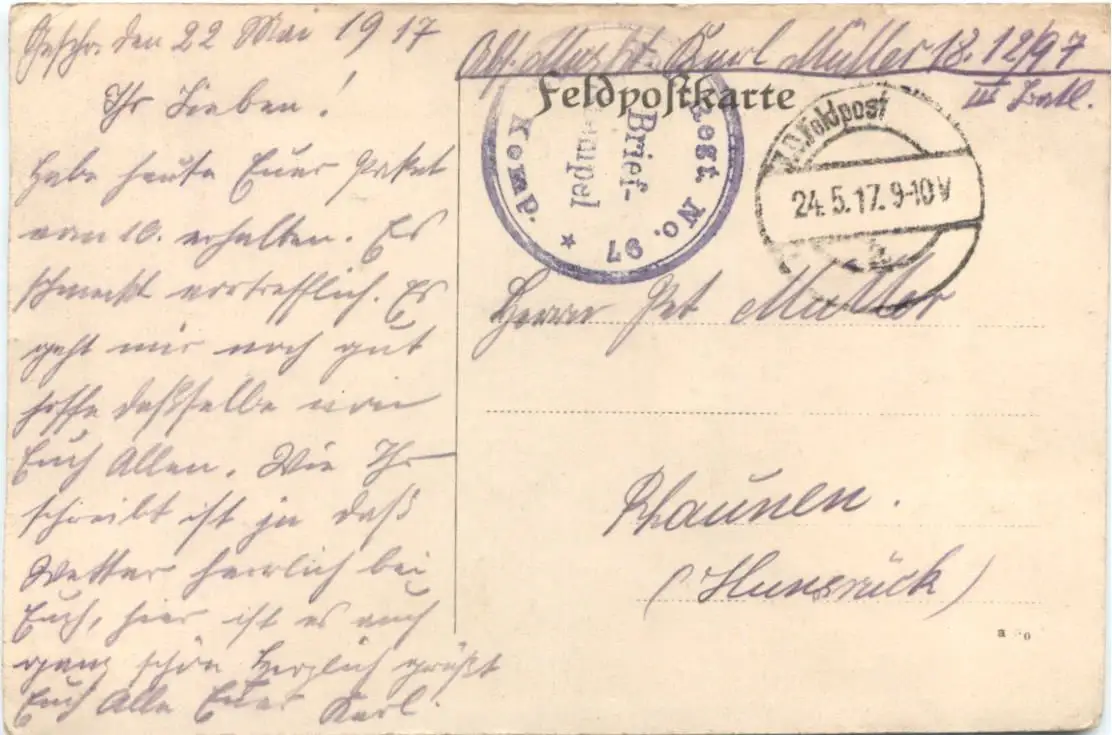 Geschr. den 22 Mai 1917
Ihr Lieben!
Habe heute Euer Paket
vom 10. erhalten. Es
schmeckt vortrefflich. Es
geht mir noch gut
hoffe daßselbe von
Euch Allen. Wie Ihr
schreibt ist ja daß
Wetter herrlich bei
Euch, hier ist es auch
ganz schön Herzlich grüßt
Euch Alle Euer Karl.
Abs. Musk. Karl Müller 12/97
III Batl.
Feldpostkarte
Regt No. 97
Brief-
stempel
Komd.
Feldpost
24.5.17. 9-10V
Herrn Pet Müller
Rhaunen.
(Hunsrück)